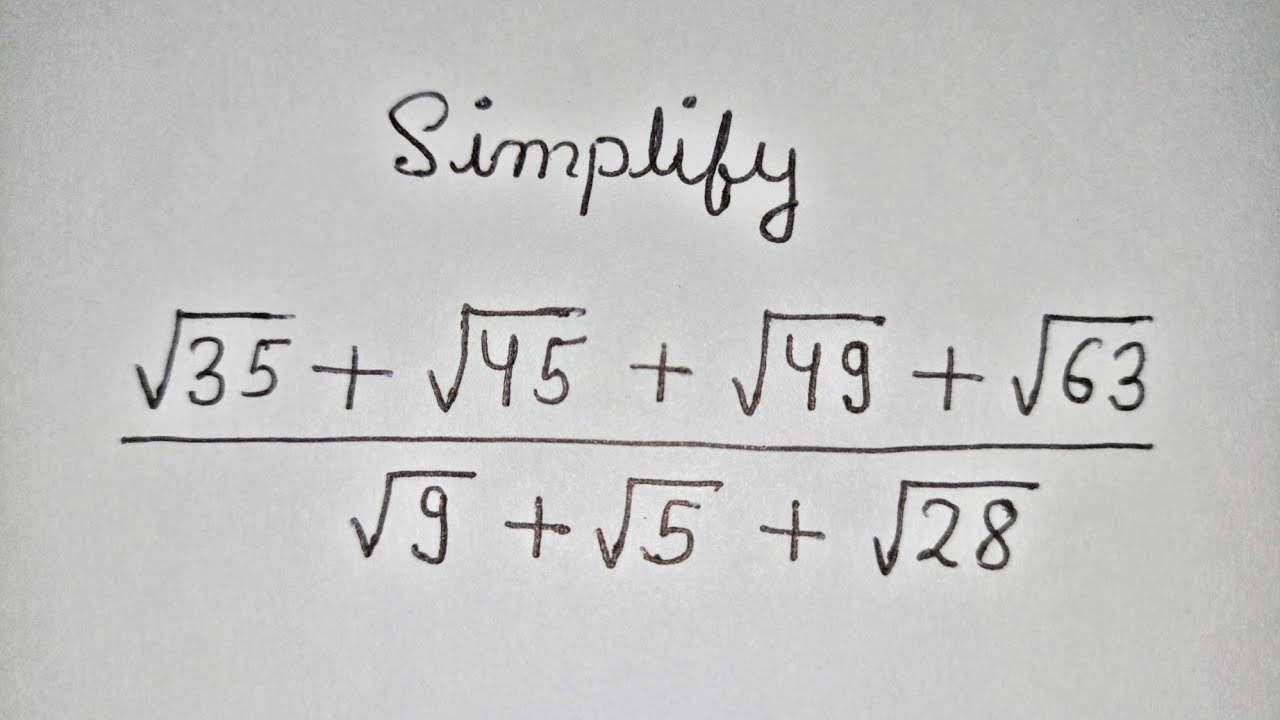 Simplify
√35 + √45 + √49 + √63
√9 + √5 + √28